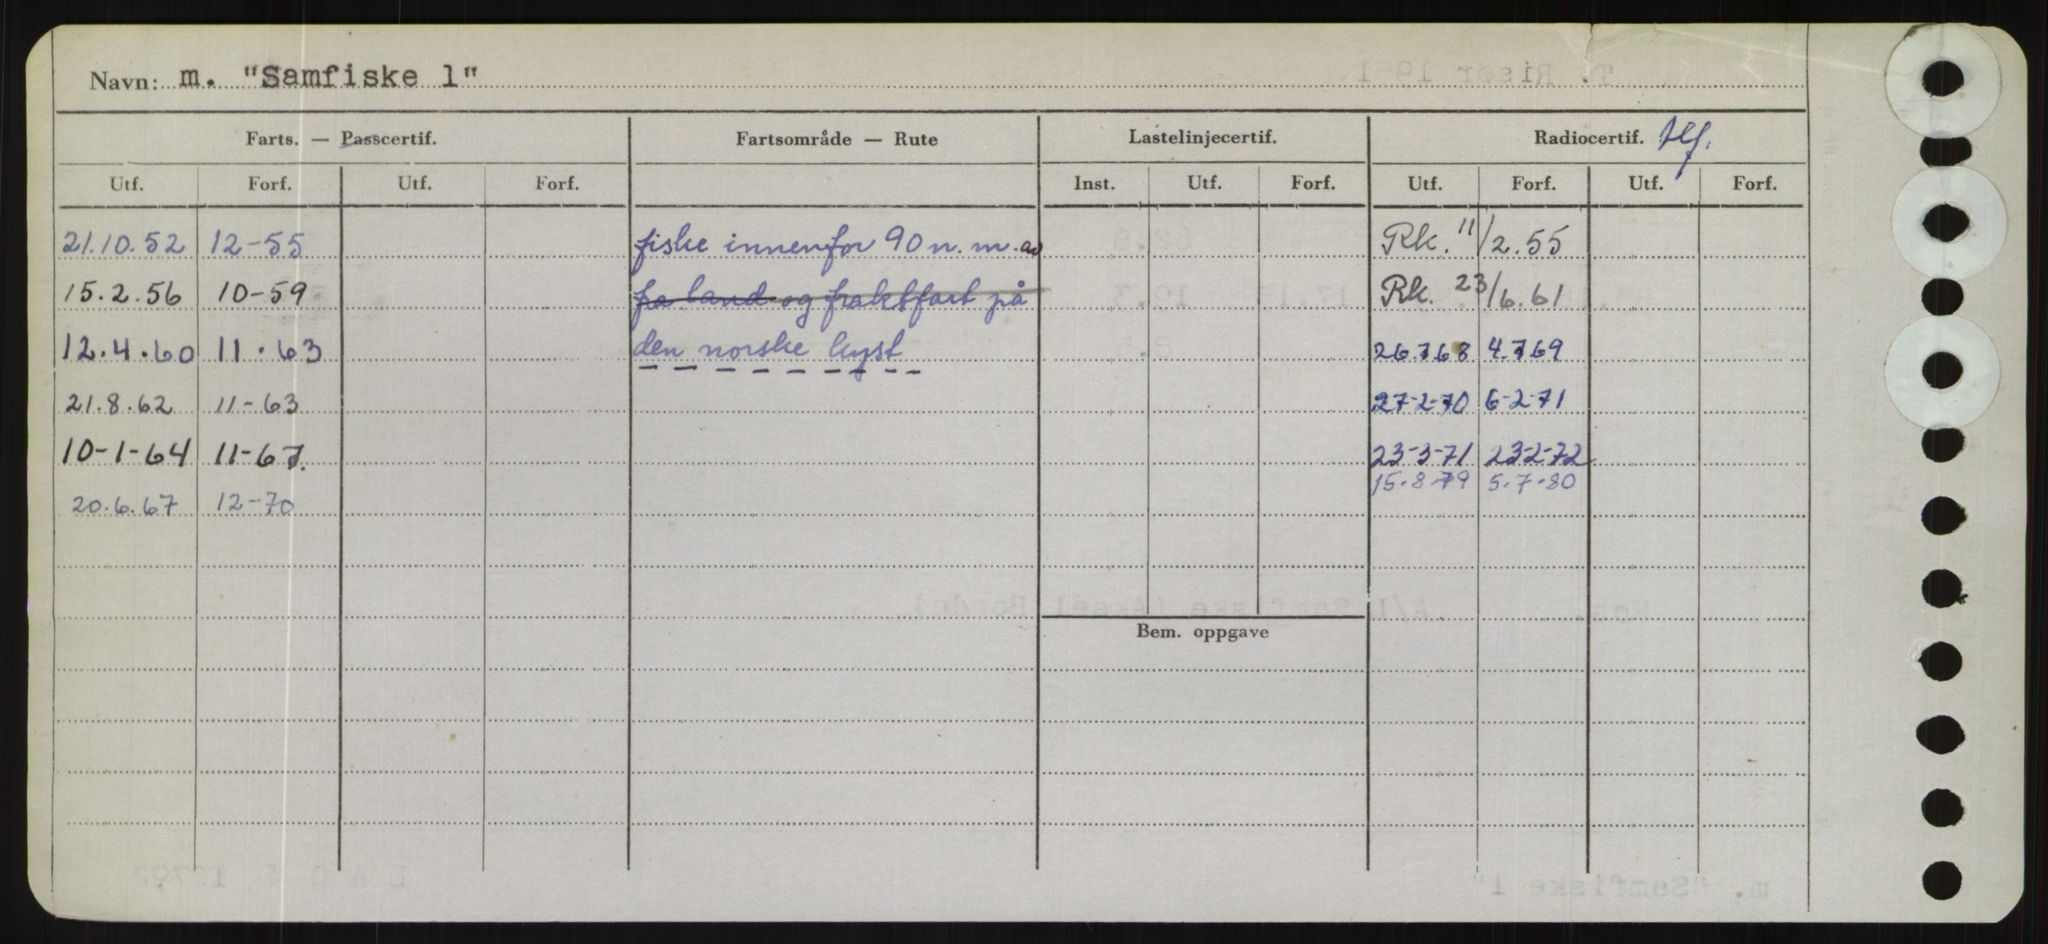 Navn: m. "Samfiske 1"
Farts. — Passcertif. Fartsområde — Rute Lastelinjecertif. Radiocertif. tlf.
Utf. Forf. Utf. Forf. Inst. Utf. Forf. Utf. Forf. Utf. Forf.
21.10.52 12-55 fiske innenfor 90 n.m. av Rk. 11/2.55
15.2.56 10-59 fra land og fraktfart på Rk. 23/6.61
12.4.60 11.63 den norske kyst 26.7.68 4.7.69
21.8.62 11-63 27-2-70 6-2-71
10-1-64 11-67. 23-3-71 23-2-72
20.6.67 12-70 15.8.79 5.7.80
Bem. oppgave